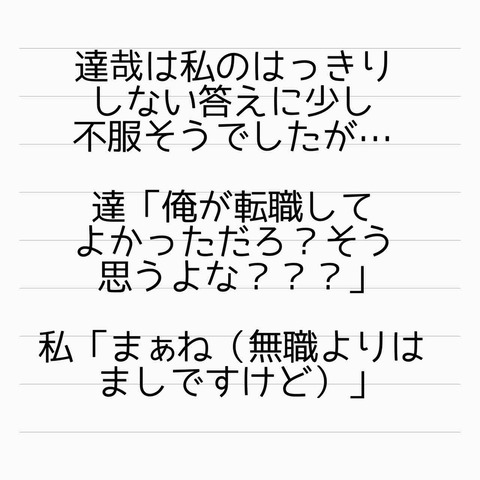 達哉は私のはっきり
しない答えに少し
不服そうでしたが…
達「俺が転職して
よかっただろ？そう
思うよな？？？」
私「まぁね（無職よりは
ましですけど）」